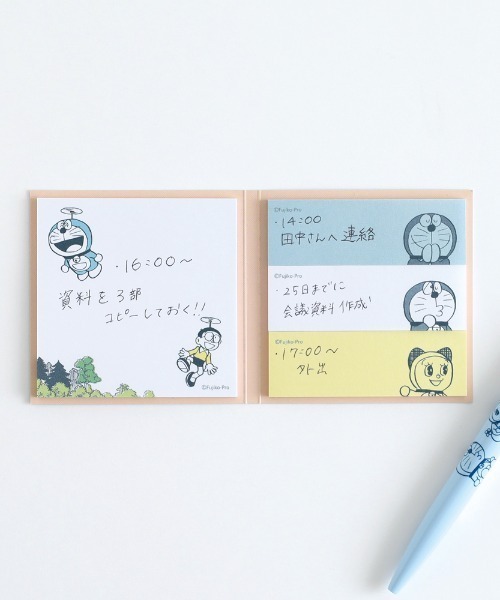 ・16:00～
資料を3部
コピーしておく!!
©Fujiko-Pro
©Fujiko-Pro
・14:00
田中さんへ連絡
©Fujiko-Pro
・25日までに
会議資料作成!
©Fujiko-Pro
・17:00～
外出